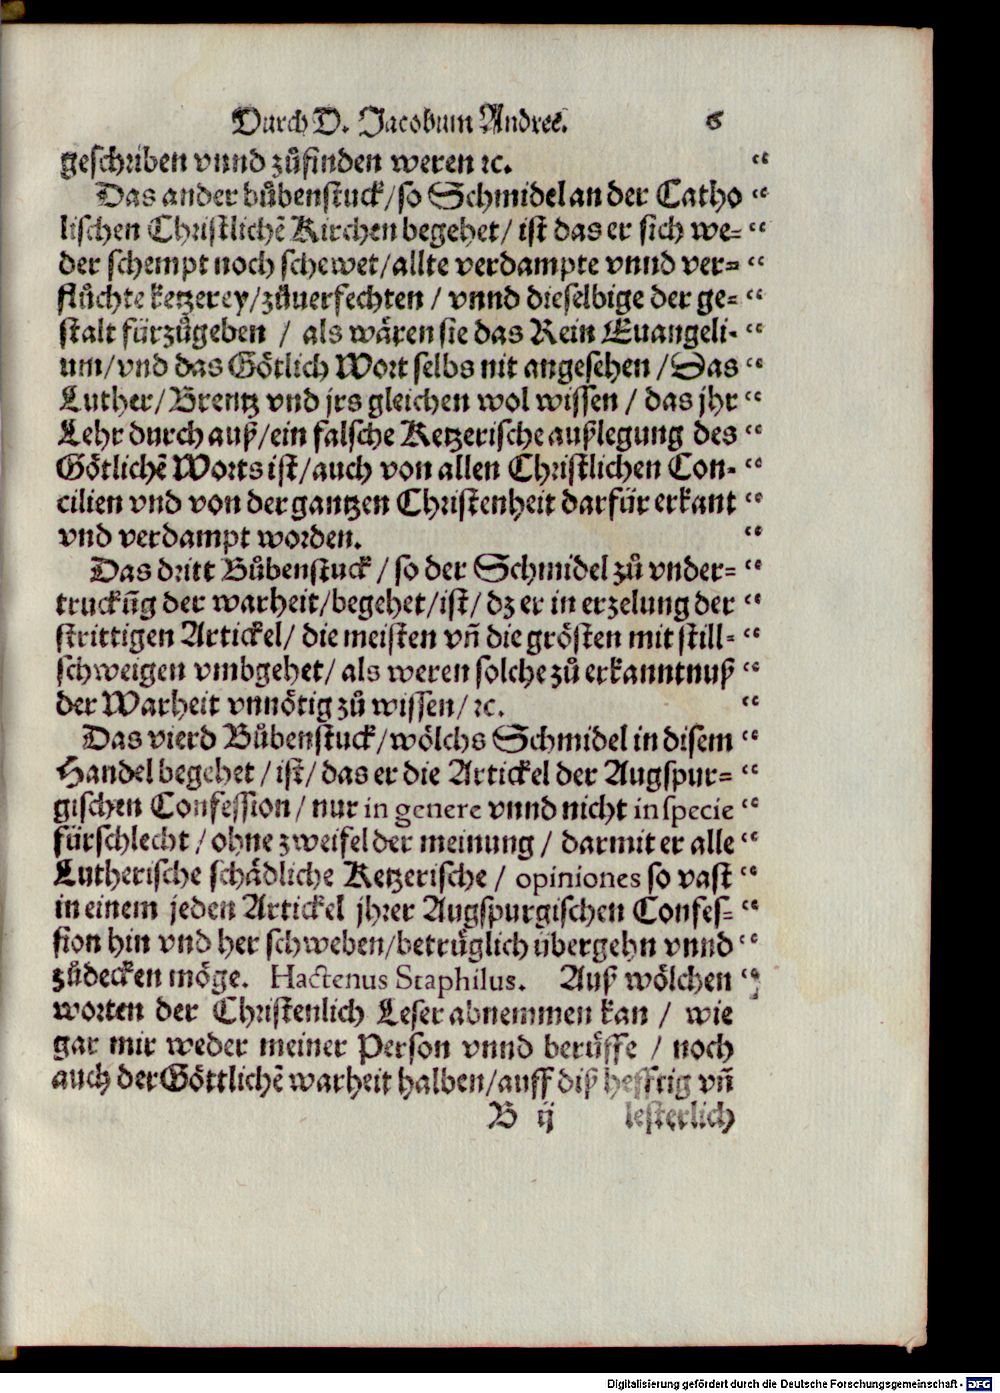 Durch D. Jacobum Andree. 6
geschriben vnnd zůfinden weren ꝛc. “
Das ander bůbenstuck/so Schmidel an der Catho “
lischen Christlichẽ Kirchen begehet/ ist das er sich we= “
der schempt noch schewet/allte verdampte vnnd ver= “
flůchte ketzerey/zůuerfechten / vnnd dieselbige der ge= “
stalt fürzůgeben / als wären sie das Rein Euangeli- “
um/vnd das Götlich Wort selbs nit angesehen /Das “
Luther/ Brentz vnd jrs gleichen wol wissen / das jhr “
Lehr durch auß/ein falsche Ketzerische außlegung des “
Götlichẽ Worts ist/auch von allen Christlichen Con- “
cilien vnd von der gantzen Christenheit darfür erkant “
vnd verdampt worden. “
Das dritt Bůbenstuck / so der Schmidel zů vnder= “
truckũg der warheit/begehet/ist/ dz er in erzelung der “
strittigen Artickel/ die meisten vñ die grösten mit still= “
schweigen vmbgehet/ als weren solche zů erkanntnuß “
der Warheit vnnötig zů wissen/ ꝛc. “
Das vierd Bůbenstuck/wölchs Schmidel in disem “
Handel begehet /ist/ das er die Artickel der Augspur= “
gischen Confession/ nur in genere vnnd nicht in specie “
fürschlecht / ohne zweifel der meinung / darmit er alle “
Lutherische schädliche Ketzerische / opiniones so vast “
in einem jeden Artickel jhrer Augspurgischen Confes= “
sion hin vnd her schweben/betrüglich übergehn vnnd “
zůdecken möge. Hactenus Staphilus. Auß wölchen “
worten der Christenlich Leser abnemmen kan / wie
gar mir weder meiner Person vnnd berůffe / noch
auch der Göttlichẽ warheit halben/auff diß hefftig vñ
B ij lesterlich
Digitalisierung gefördert durch die Deutsche Forschungsgemeinschaft - DFG